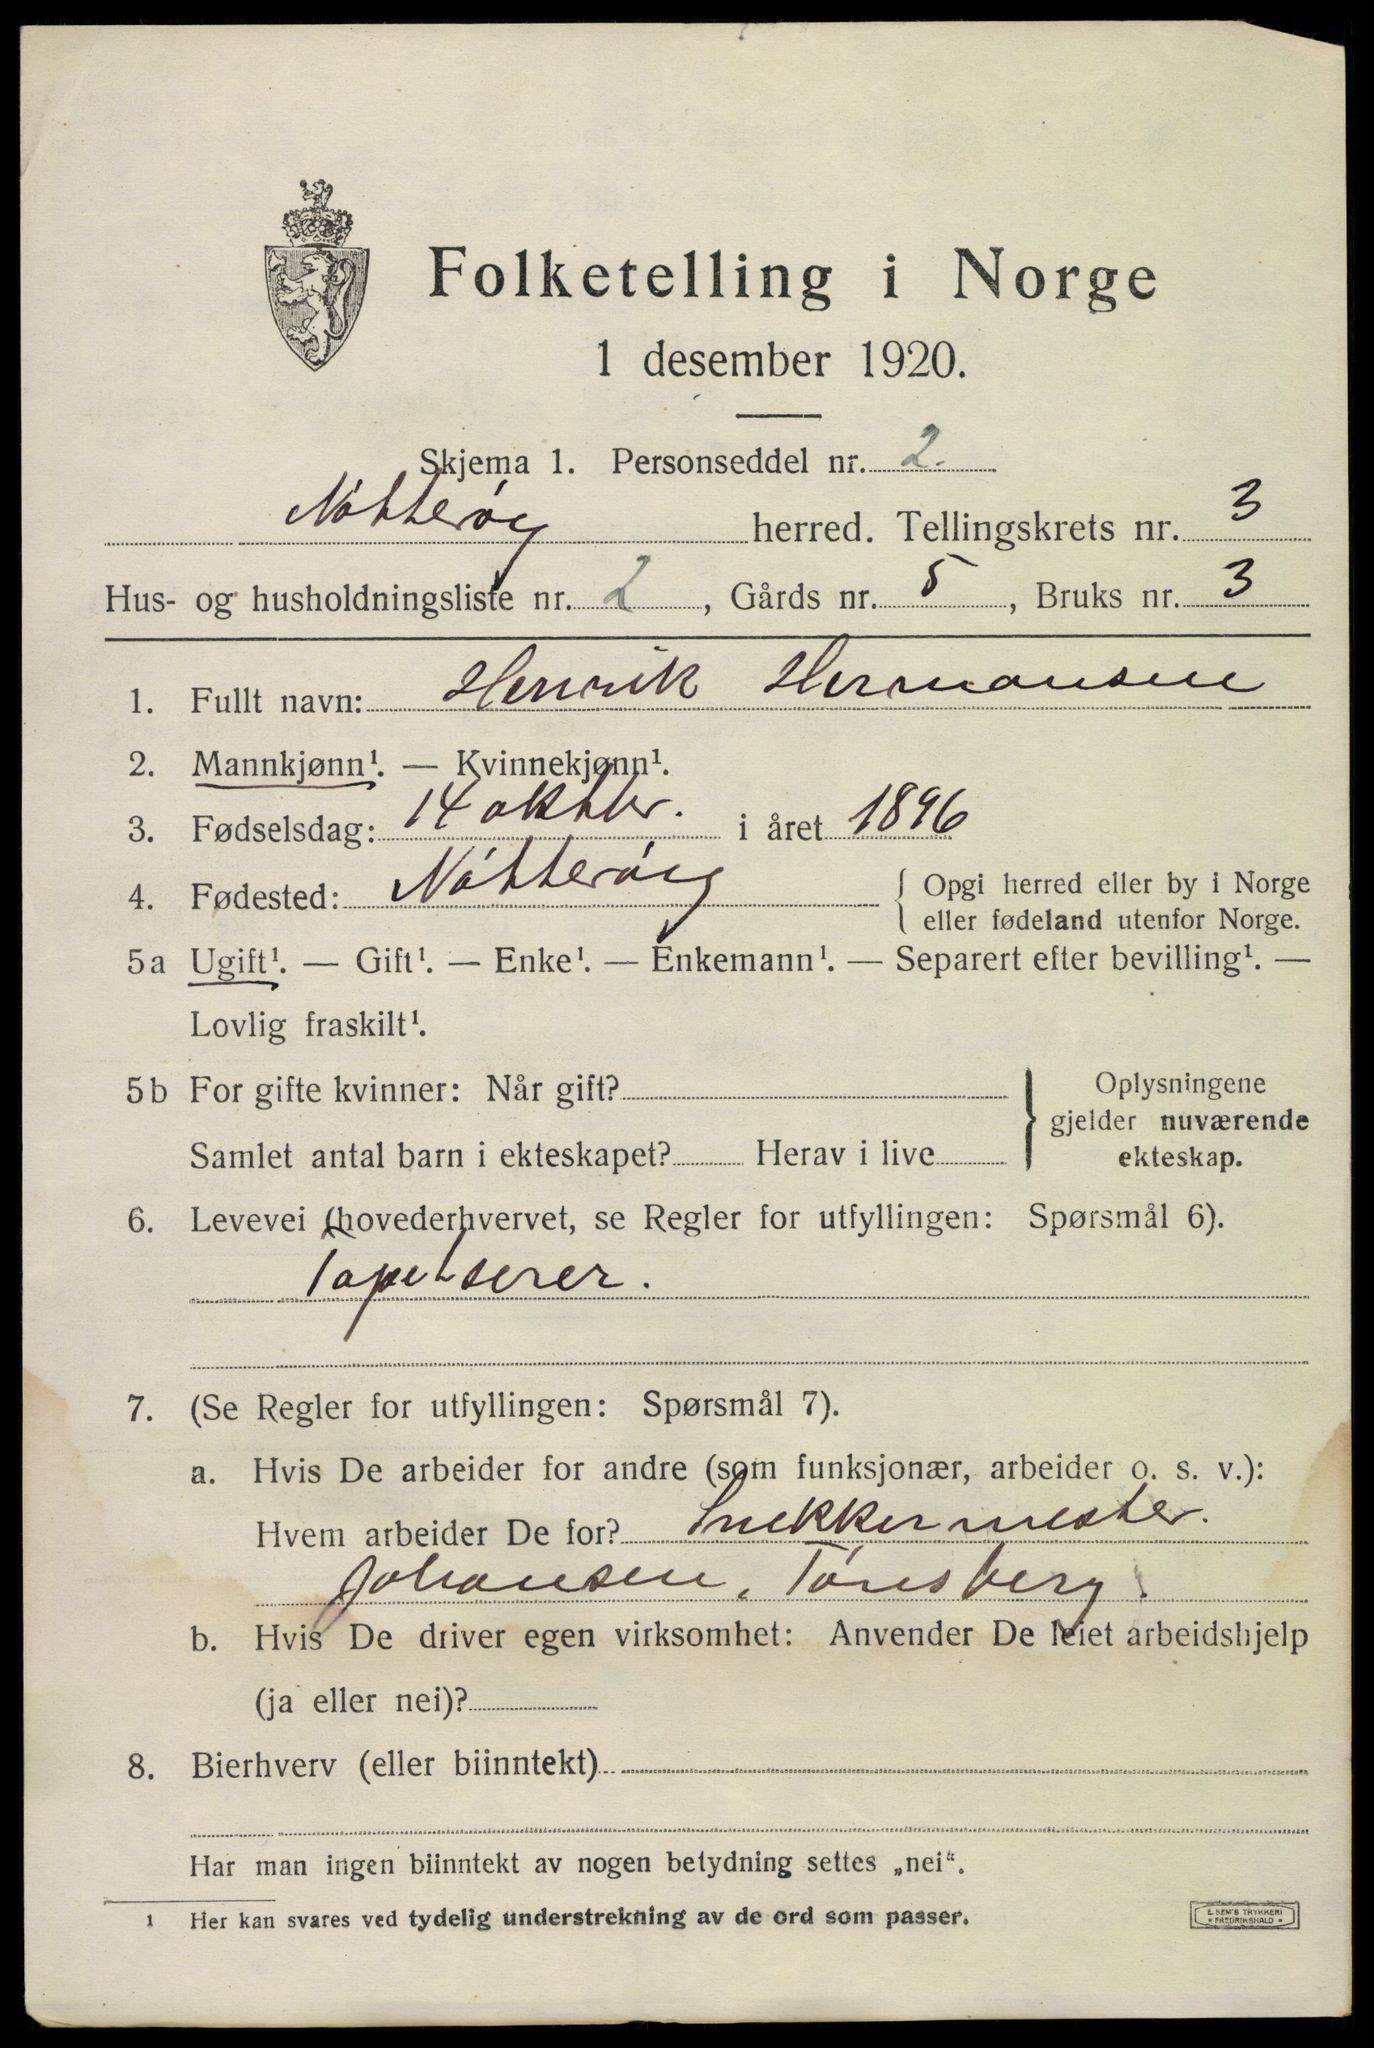 Folketelling i Norge
1 desember 1920.
Skjema 1. Personseddel nr. 2.
Nötteröy herred. Tellingskrets nr. 3
Hus- og husholdningsliste nr. 2, Gårds nr. 5, Bruks nr. 3
1. Fullt navn: Henrik Hermansen
2. Mannkjønn¹. — Kvinnekjønn¹.
3. Fødselsdag: 14 oktbr. i året 1896
4. Fødested: Nötteröy { Opgi herred eller by i Norge
eller fødeland utenfor Norge.
5a Ugift¹. — Gift¹. — Enke¹. — Enkemann¹. — Separert efter bevilling¹. —
Lovlig fraskilt¹.
5b For gifte kvinner: Når gift? } Oplysningene
gjelder nuværende
Samlet antal barn i ekteskapet? Herav i live ekteskap.
6. Levevei (hovederhvervet, se Regler for utfyllingen: Spørsmål 6).
Tapetserer.
7. (Se Regler for utfyllingen: Spørsmål 7).
a. Hvis De arbeider for andre (som funksjonær, arbeider o. s. v.):
Hvem arbeider De for? Snekkermester.
Johansen, Tönsberg.
b. Hvis De driver egen virksomhet: Anvender De leiet arbeidshjelp
(ja eller nei)?
8. Bierhverv (eller biinntekt)
Har man ingen biinntekt av nogen betydning settes „nei“.
1 Her kan svares ved tydelig understrekning av de ord som passer.
E. SEM'S TRYKKERI
* FREDRIKSHALD *